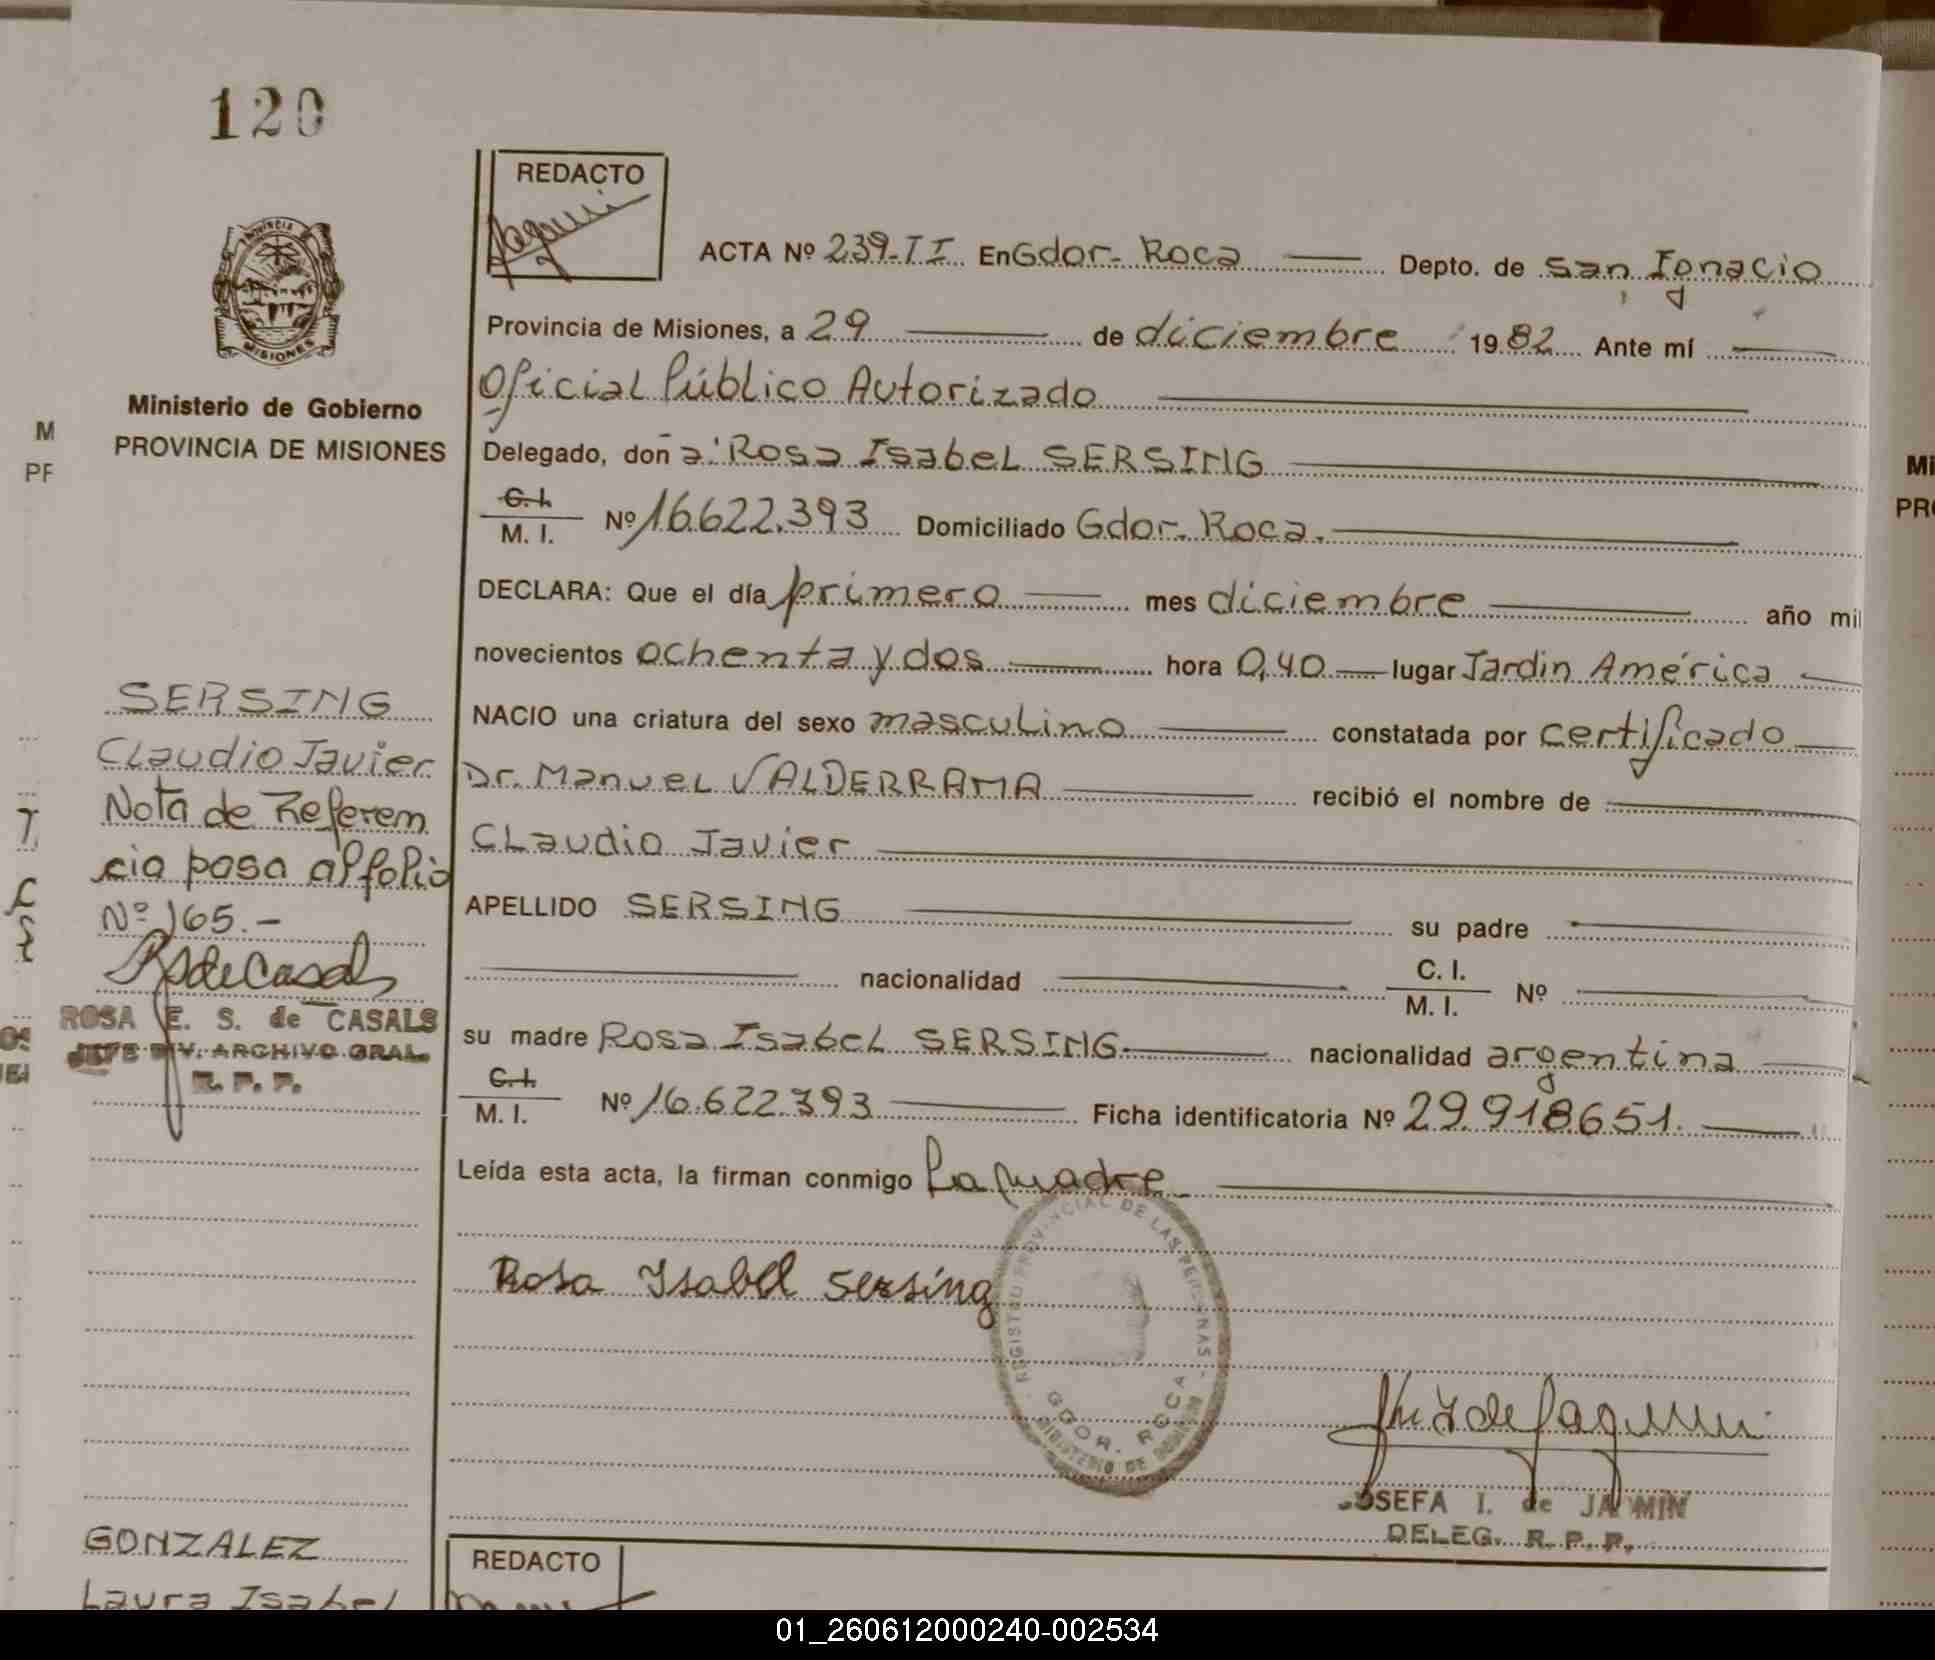 120
REDACTO
PROVINCIA
MISIONES
ACTA Nº 239-II En Gdor. Roca Depto. de San Ignacio
Provincia de Misiones, a 29 de diciembre 1982 Ante mí
Oficial Público Autorizado
Ministerio de Gobierno
PROVINCIA DE MISIONES
Delegado, don a: Rosa Isabel SERSING
C. I.
M. I. Nº 16.622.393 Domiciliado Gdor. Roca.
DECLARA: Que el día primero mes diciembre año mil
novecientos ochenta y dos hora 0,40 lugar Jardin América
NACIO una criatura del sexo masculino constatada por certificado
Dr. Manuel VALDERRAMA recibió el nombre de
Claudio Javier
APELLIDO SERSING su padre
nacionalidad C. I.
M. I. Nº
su madre Rosa Isabel SERSING nacionalidad argentina
C. I.
M. I. Nº 16.622.393 Ficha identificatoria Nº 29.918.651.
Leída esta acta, la firman conmigo la madre
Rosa Isabel Sersing
REGISTRO PROVINCIAL DE LAS PERSONAS
GDOR. ROCA
MINISTERIO DE GOBIERNO
JOSEFA I. de JAQMIN
DELEG. R. P. P.
SERSING
Claudio Javier
Nota de Referem
cia pasa al folio
Nº 165.-
RSdeCasals
ROSA E. S. de CASALS
JEFE DIV. ARCHIVO GRAL.
R. P. P.
GONZALEZ
Laura Isabel
REDACTO
M
PF
Mi
PR
01_260612000240-002534